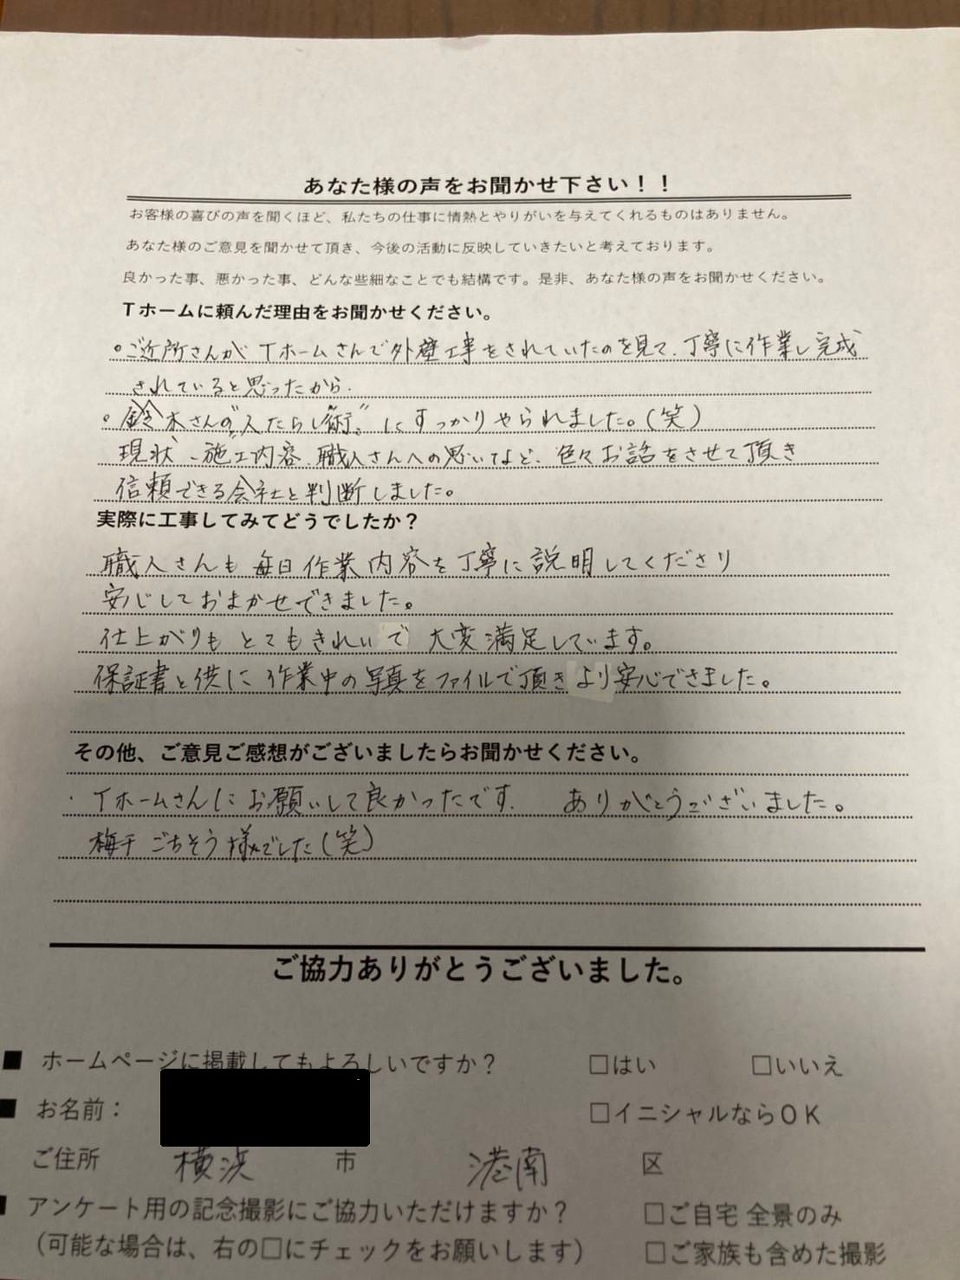 あなた様の声をお聞かせ下さい！！
お客様の喜びの声を聞くほど、私たちの仕事に情熱とやりがいを与えてくれるものはありません。
あなた様のご意見を聞かせて頂き、今後の活動に反映していきたいと考えております。
良かった事、悪かった事、どんな些細なことでも結構です。是非、あなた様の声をお聞かせください。
Ｔホームに頼んだ理由をお聞かせください。
。ご近所さんが Tホームさんで外壁工事をされていたのを見て、丁寧に作業し完成
されていると思ったから.
。鈴木さんの“人たらし術” にすっかりやられました。(笑)
現状、施工内容、職人さんへの思いなど、色々お話をさせて頂き
信頼できる会社と判断しました。
実際に工事してみてどうでしたか？
職人さんも 毎日 作業 内容を丁寧に説明してくださり
安心しておまかせできました。
仕上がりも とてもきれいで 大変満足しています。
保証書と供に 作業中の写真をファイルで頂き より安心できました。
その他、ご意見ご感想がございましたらお聞かせください。
・Tホームさんにお願いして良かったです. ありがとうございました。
梅干 ごちそう様でした(笑)
ご協力ありがとうございました。
■ ホームページに掲載してもよろしいですか？ □はい □いいえ
■ お名前： □イニシャルならＯＫ
ご住所 横浜 市 港南 区
■ アンケート用の記念撮影にご協力いただけますか？ □ご自宅 全景のみ
（可能な場合は、右の□にチェックをお願いします） □ご家族も含めた撮影